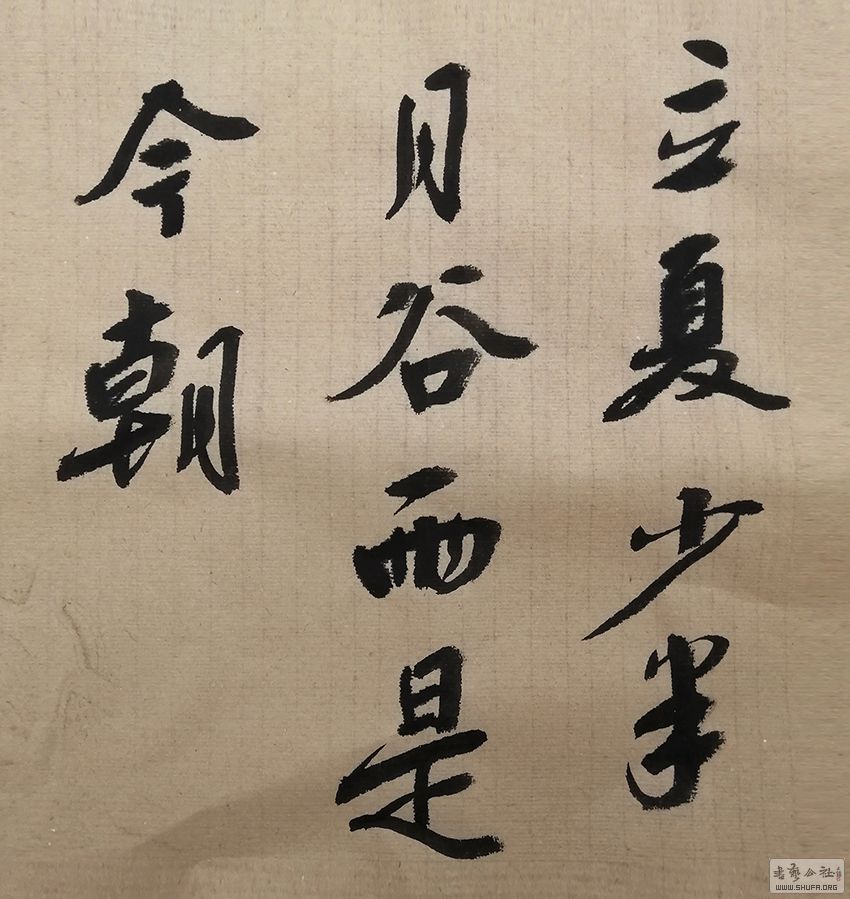 立夏少半
月谷雨是
今朝
书艺公社
WWW.SHUFA.ORG